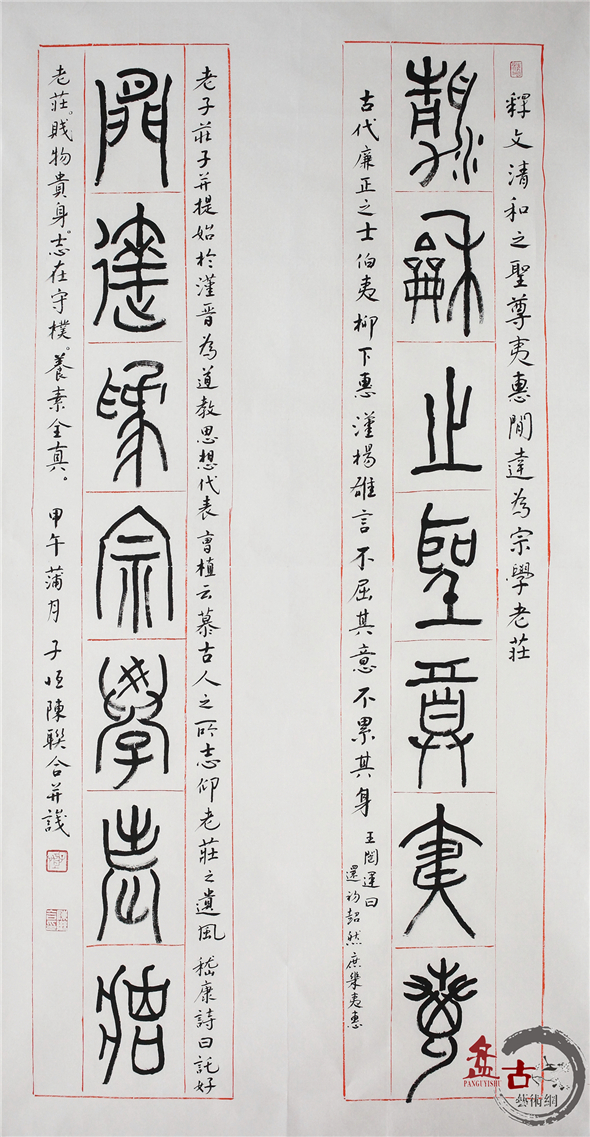 釋文清和之聖尊夷惠閒達為宗學老莊
清龢之聖尊夷惠
古代廉正之士伯夷柳下惠漢楊雄言不屈其意不累其身
王闓運曰
還初超然庶幾夷惠
老子莊子并提始於漢晉為道教思想代表曹植云慕古人之所志仰老莊之遺風嵇康詩曰託好
閒達為宗學老莊
老莊。賤物貴身。志在守樸。養素全真。甲午蒲月子恒陳聯合并識
盘古
PANGUYISHU
藝術網